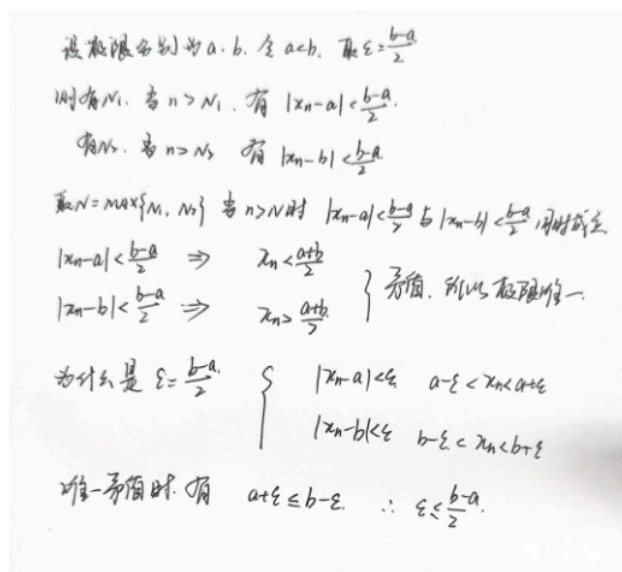 设极限分别为 a. b. 令 a<b. 取 ε=\frac{b-a}{2}
则有N₁. 当 n>N₁. 有 |xn-a|<\frac{b-a}{2}.
有N₂. 当 n>N₂ 有 |xn-b|<\frac{b-a}{2}
取N=MAX{N₁, N₂} 当 n>N时 |xn-a|<\frac{b-a}{2} 与 |xn-b|<\frac{b-a}{2} 同时成立
|xn-a|<\frac{b-a}{2} ⇒ xn<\frac{a+b}{2}
|xn-b|<\frac{b-a}{2} ⇒ xn>\frac{a+b}{2} } 矛盾. 所以极限唯一.
为什么是 ε=\frac{b-a}{2} { |xn-a|<ε. a-ε<xn<a+ε
|xn-b|<ε b-ε<xn<b+ε
唯一矛盾时. 有 a+ε≤b-ε. ∴ ε≤\frac{b-a}{2}.